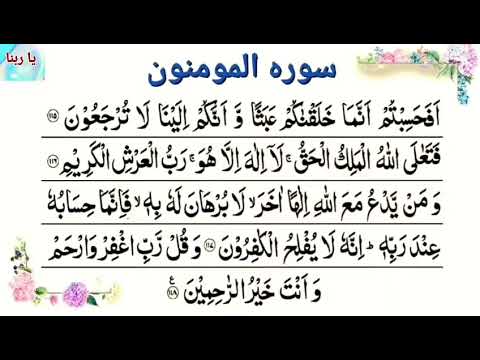 يا ربنا
سوره المومنون
اَفَحَسِبْتُمْ اَنَّمَا خَلَقْنٰكُمْ عَبَثًا وَّ اَنَّكُمْ اِلَيْنَا لَا تُرْجَعُوْنَ ﴿۱۱۵﴾
فَتَعٰلَى اللّٰهُ الْمَلِكُ الْحَقُّ ۚ لَاۤ اِلٰهَ اِلَّا هُوَ ۚ رَبُّ الْعَرْشِ الْكَرِيْمِ ﴿۱۱۶﴾
وَ مَنْ يَّدْعُ مَعَ اللّٰهِ اِلٰهًا اٰخَرَ ۙ لَا بُرْهَانَ لَهٗ بِهٖ ۙ فَاِنَّمَا حِسَابُهٗ
عِنْدَ رَبِّهٖ ؕ اِنَّهٗ لَا يُفْلِحُ الْكٰفِرُوْنَ ﴿۱۱۷﴾ وَ قُلْ رَّبِّ اغْفِرْ وَ ارْحَمْ
وَ اَنْتَ خَيْرُ الرّٰحِمِيْنَ ﴿۱۱۸﴾ ع